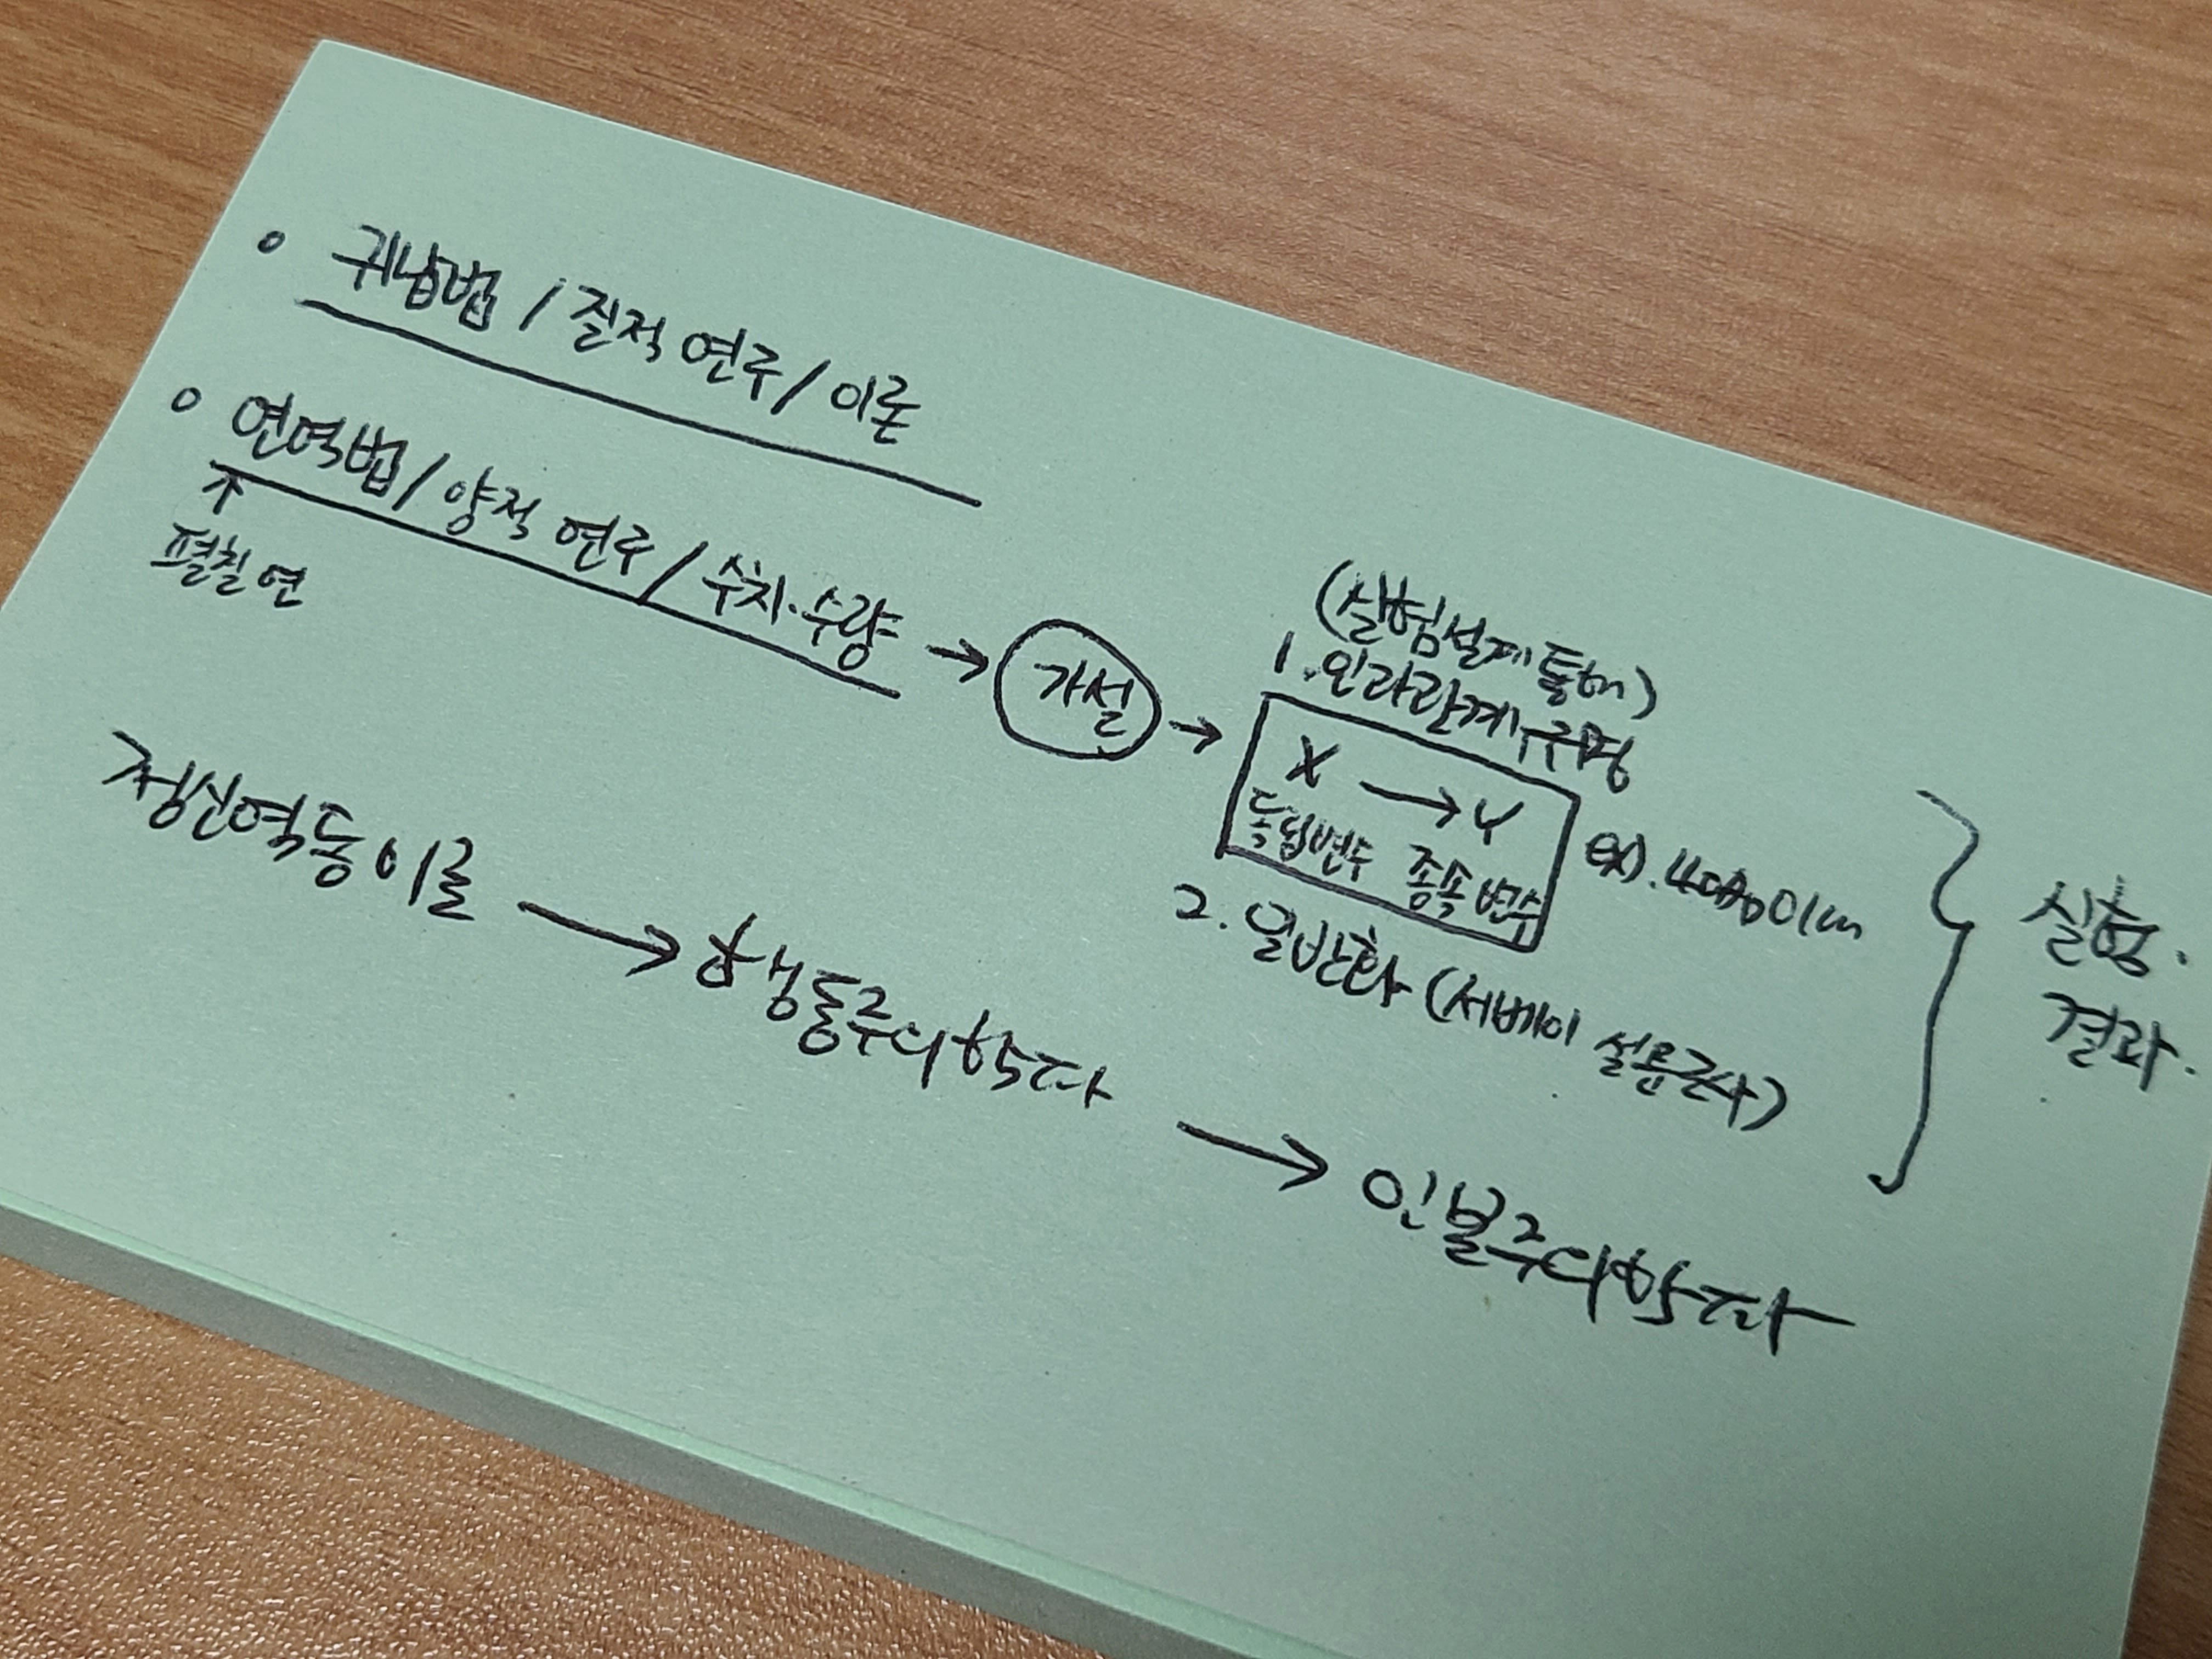 ○ 귀납법 / 질적 연구 / 이론
○ 연역법 / 양적 연구 / 수치·수량 → 가설 →
펼칠 연
(실험설계 통해)
1. 인과관계 규명
X → Y
독립변수 종속변수
ex).
2. 일반화 (서베이 설문조사)
실험.
결과.
정신역동이론 → 행동주의학파 → 인본주의학파